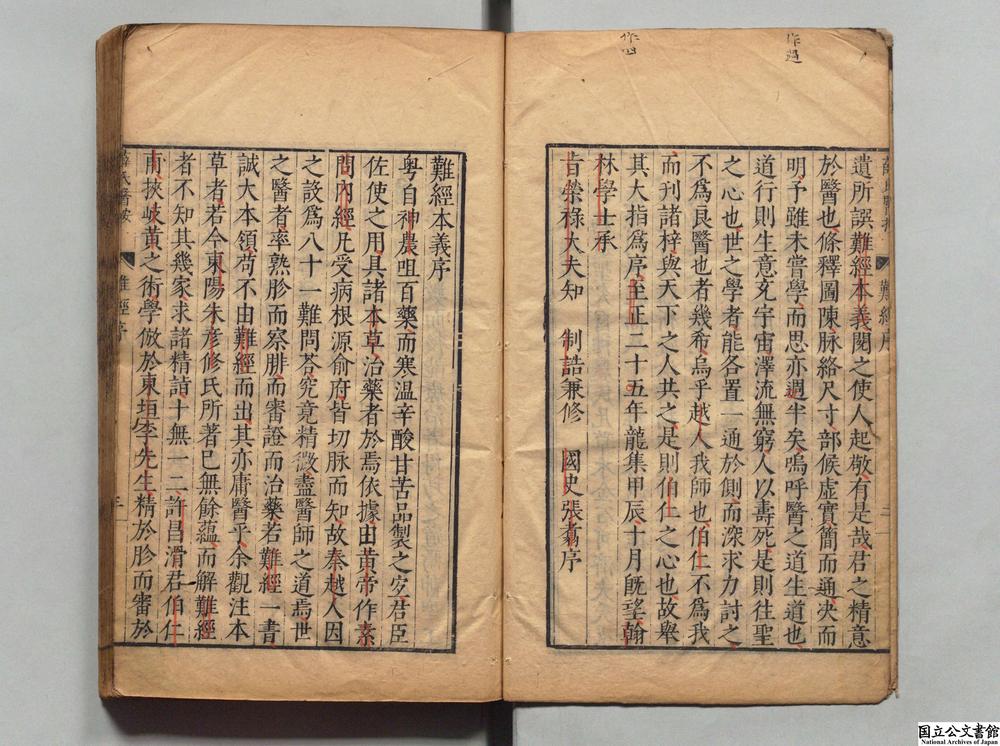 作四
作過
遺所誤難經本義閱之使人起敬有是哉君之精意
於醫也條釋圖陳脉絡尺寸部候虛實簡而通决而
明予雖未嘗學而思亦過半矣嗚呼醫之道生道也
道行則生意充宇宙澤流無窮人以壽死是則往聖
之心也世之學者能各置一通於側而深求力討之
不爲良醫也者幾希烏乎越人我師也伯仁不爲我
而刊諸梓與天下之人共之是則伯仁之心也故舉
其大指爲序至正二十五年龍集甲辰十月旣望翰
林學士承
旨榮祿大夫知 制誥兼修 國史張翥序
難經序
難經本義序
粤自神農咀百藥而寒温辛酸甘苦品製之宐君臣
佐使之用具諸本草治藥者於焉依據由黃帝作素
問內經凡受病根源俞府皆切脉而知故秦越人因
之設爲八十一難問荅究竟精微盡醫師之道焉世
之醫者率熟胗而察腓而審證而治藥若難經一書
誠大本領苟不由難經而出其亦庸醫乎余觀注本
草者若今東陽朱彦修氏所著已無餘蘊而解難經
者不知其幾家求諸精詣十無一二許昌滑君伯仁
甫挾岐黃之術學倣於東垣李先生精於胗而審於
難經序
国立公文書館
National Archives of Japan